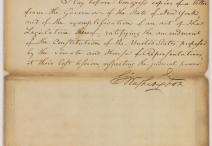 I lay before Congress copies of a letter
from the Governor of the State of New York,
and of the exemplification of an act of the
Legislature thereof, ratifying the amendment
of the Constitution of the United States proposed
by the Senate and House of Representatives,
at their last session, respecting the judicial power.
G. Washington